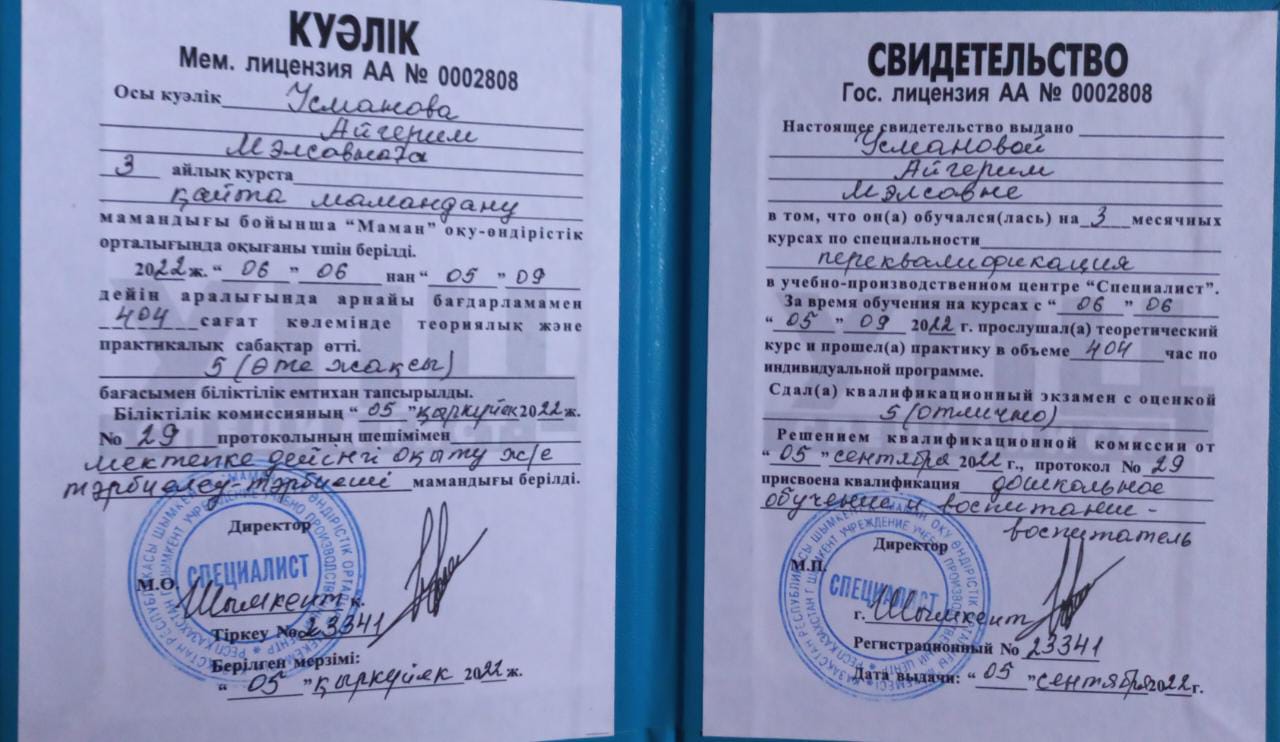 КУӘЛІК
Мем. лицензия АА № 0002808
Осы куәлік Усманова
Айгерим
Мэлсовнаға
3 айлық курста
қайта мамандану
мамандығы бойынша “Маман” оқу-өндірістік
орталығында оқығаны үшін берілді.
2022 ж. “ 06 ” 06 нан “ 05 ” 09
дейін аралығында арнайы бағдарламамен
404 сағат көлемінде теориялық және
практикалық сабақтар өтті.
5 (өте жақсы)
бағасымен біліктілік емтихан тапсырылды.
Біліктілік комиссияның “ 05 ” қыркүйек 2022 ж.
№ 29 протоколының шешімімен
мектепке дейінгі оқыту ж/е
тәрбиелеу-тәрбиеші мамандығы берілді.
Директор
М.О.
СПЕЦИАЛИСТ
Шымкент к.
Тіркеу № 23341
Берілген мерзімі:
“ 05 ” қыркүйек 2022 ж.
СВИДЕТЕЛЬСТВО
Гос. лицензия АА № 0002808
Настоящее свидетельство выдано
Усмановой
Айгерим
Мэлсовне
в том, что он(а) обучался(лась) на 3 месячных
курсах по специальности
переквалификация
в учебно-производственном центре “Специалист”.
За время обучения на курсах с “ 06 ” 06
“ 05 ” 09 2022 г. прослушал(а) теоретический
курс и прошел(а) практику в объеме 404 час по
индивидуальной программе.
Сдал(а) квалификационный экзамен с оценкой
5 (отлично)
Решением квалификационной комиссии от
“ 05 ” сентября 2022 г., протокол № 29
присвоена квалификация дошкольное
обучение и воспитание -
воспитатель
Директор
М.П.
СПЕЦИАЛИСТ
г. Шымкент
Регистрационный № 23341
Дата выдачи: “ 05 ” сентября 2022 г.